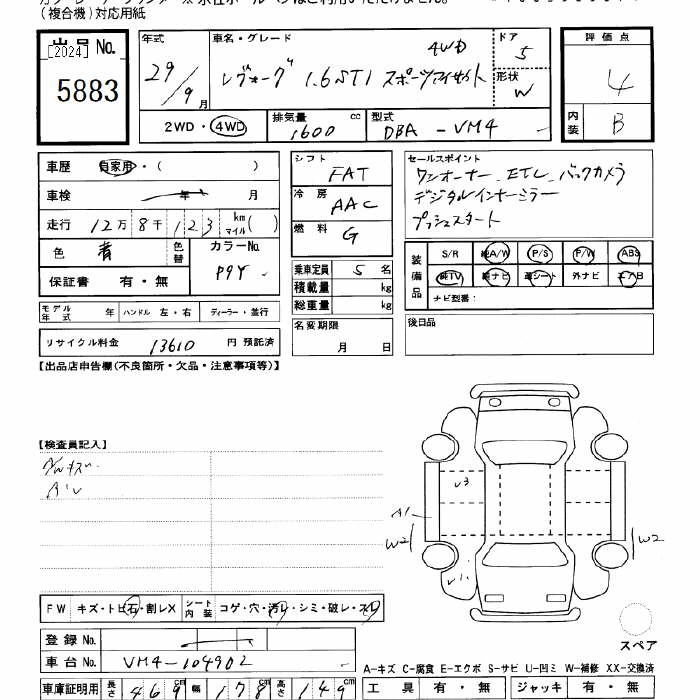 (複合機)対応用紙
出品 No.
[2024]
5883
年式
29/9月
車名・グレード
4WD
レヴォーグ 1.6STI スポーツアイサイト
ドア
5
形状
W
2WD・4WD
排気量
1600 cc
型式
DBA-VM4
評価点
4
内装
B
車歴 自家用・( )
車検 年 月
走行 12万8千123 km マイル( )
色 青 色替
カラーNo.
P9Y
保証書 有・無
モデル年式 年 ハンドル 左・右 ディーラー・並行
リサイクル料金 13610 円 預託済
シフト
FAT
冷房
AAC
燃料
G
乗車定員 5 名
積載量 kg
総重量 kg
名変期限
月 日
セールスポイント
ワンオーナー ETC バックカメラ
デジタルインナーミラー
プッシュスタート
装備品
S/R 純A/W P/S P/W ABS
純TV 純ナビ 革シート 外ナビ エアB
ナビ型番:
後日品
【出品店申告欄(不良箇所・欠品・注意事項等)】
【検査員記入】
V3
A1
W2
W2
FW キズ・トビ石・割レX
シート内装 コゲ・穴・汚レ・シミ・破レ・スレ
登録 No.
車台 No. VM4-104902
車庫証明用 長さ 469cm 幅 178cm 高さ 149cm
スペア
A-キズ C-腐食 E-エクボ S-サビ U-凹ミ W-補修 XX-交換済
工具 有・無 ジャッキ 有・無